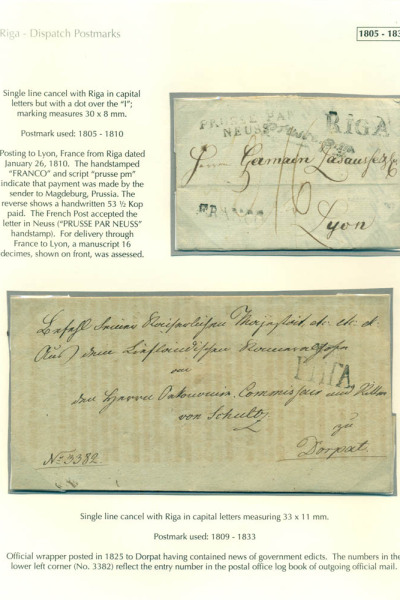 Riga - Dispatch Postmarks
1805 - 183
Single line cancel with Riga in capital
letters but with a dot over the "I";
marking measures 30 x 8 mm.
Postmark used: 1805 - 1810
Posting to Lyon, France from Riga dated
January 26, 1810. The handstamped
"FRANCO" and script "prusse pm"
indicate that payment was made by the
sender to Magdeburg, Prussia. The
reverse shows a handwritten 53 ½ Kop
paid. The French Post accepted the
letter in Neuss ("PRUSSE PAR NEUSS"
handstamp). For delivery through
France to Lyon, a manuscript 16
decimes, shown on front, was assessed.
PRUSSE PAR
NEUSS
RIGA
Germain
16
FRANCO
Lyon
Befehl Seiner Kaiserlichen Majestät, etc. etc. etc.
Aus dem Liefländischen
an
den Herrn Commissair und Ritter
von Schultz
zu
RIGA
Dorpat.
No. 3382.
Single line cancel with Riga in capital letters measuring 33 x 11 mm.
Postmark used: 1809 - 1833
Official wrapper posted in 1825 to Dorpat having contained news of government edicts. The numbers in the
lower left corner (No. 3382) reflect the entry number in the postal office log book of outgoing official mail.